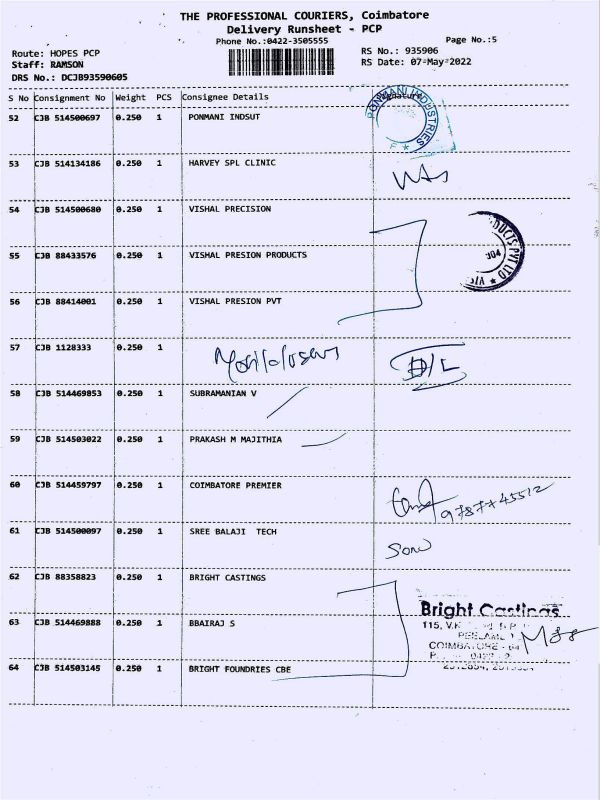 THE PROFESSIONAL COURIERS, Coimbatore
Delivery Runsheet - PCP
Phone No.:0422-3505555
Page No.:5
Route: HOPES PCP
RS No.: 935906
Staff: RAMSON
RS Date: 07-May-2022
DRS No.: DCJB93590605
S No Consignment No Weight PCS Consignee Details Signature
52 CJB 514500697 0.250 1 PONMANI INDSUT
PONMANI INDUSTRIES
53 CJB 514134186 0.250 1 HARVEY SPL CLINIC
54 CJB 514500680 0.250 1 VISHAL PRECISION
55 CJB 88433576 0.250 1 VISHAL PRESION PRODUCTS
DUCTS PVT LTD
56 CJB 88414001 0.250 1 VISHAL PRESION PVT
57 CJB 1128333 0.250 1
D/L
58 CJB 514469853 0.250 1 SUBRAMANIAN V
59 CJB 514503022 0.250 1 PRAKASH M MAJITHIA
60 CJB 514459797 0.250 1 COIMBATORE PREMIER
9787745512
61 CJB 514500097 0.250 1 SREE BALAJI TECH
62 CJB 88358823 0.250 1 BRIGHT CASTINGS
Bright Castings
63 CJB 514469888 0.250 1 BBAIRAJ S
115, V.K.
COIMBATORE
64 CJB 514503145 0.250 1 BRIGHT FOUNDRIES CBE
0422